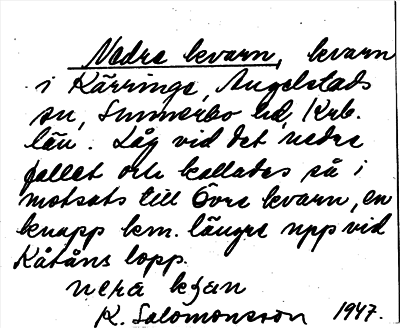 Nedre kvarn, kvarn
i Kärringe, Angelstads
sn, Sunnerbo hd, Krb.
län. Låg vid det nedre
fallet och kallades så i
motsats till Övre kvarn, en
knapp km. längre upp vid
Kåtåns lopp.
K. Salomonsson 1947.